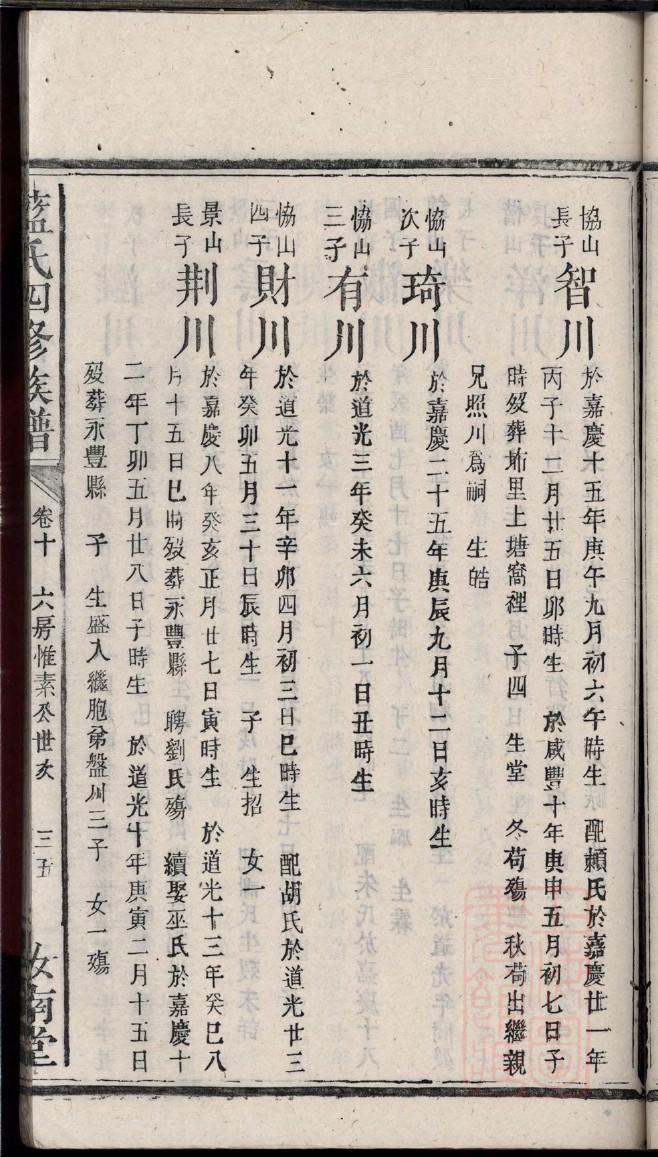 協山長子智川於嘉慶十五年庚午九月初六午時生 配賴氏於嘉慶廿一年
丙子十二月廿五日卯時生 於咸豐十年庚申五月初七日子
時歿葬垇里上塘窩裡 子四 生堂 冬苟殤 秋荷出繼親
兄照川爲嗣 生皓
恊山次子琦川於嘉慶二十五年庚辰九月十二日亥時生
恊山三子有川於道光三年癸未六月初一日丑時生
恊山四子財川於道光十一年辛卯四月初三日巳時生 配胡氏於道光廿三
年癸卯五月三十日辰時生 子 生招 女一
景山長子荆川於嘉慶八年癸亥正月廿七日寅時生 於道光十三年癸巳八
月十五日巳時歿葬永豐縣 聘劉氏殤 續娶巫氏於嘉慶十
二年丁卯五月廿八日子時生 於道光十年庚寅二月十五日
歿葬永豐縣 子 生盛入繼胞弟盤川三子 女一殤
藍氏四修族譜 卷十 六房惟素公世次 三五 汝南堂